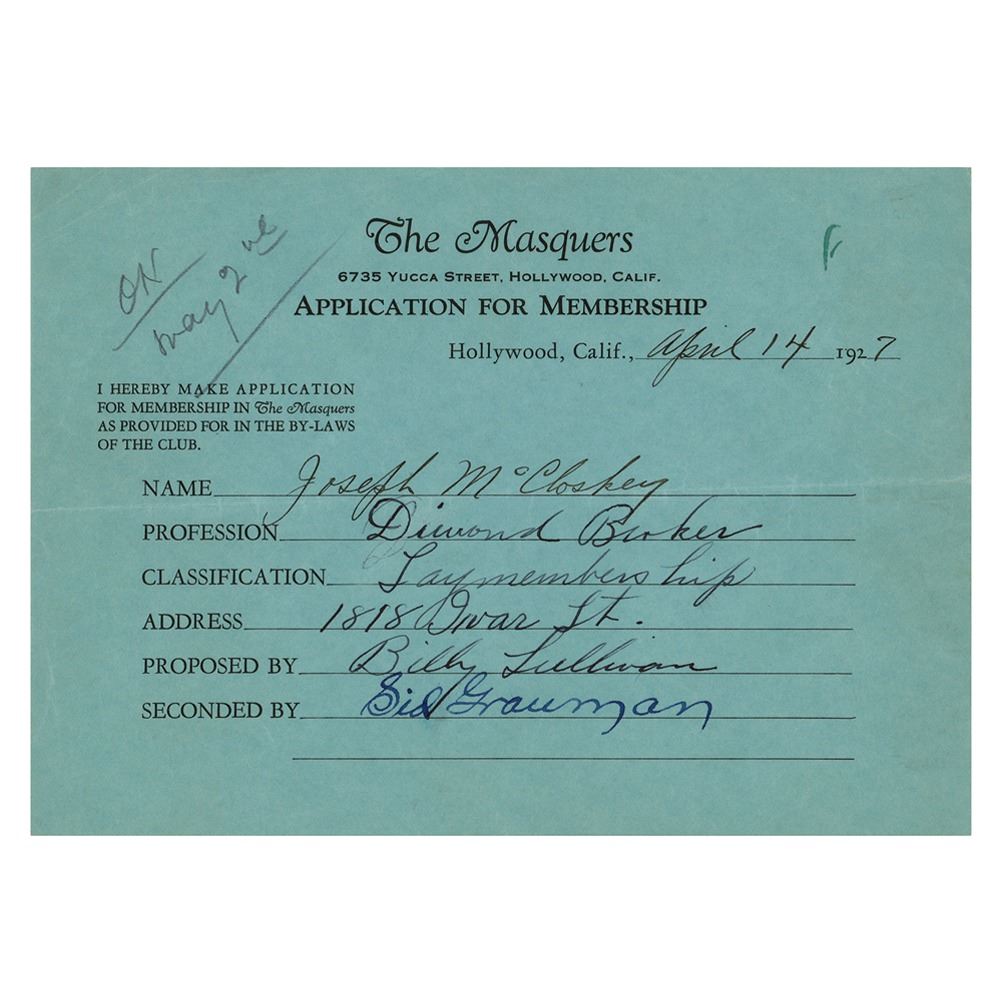 OK
May 2nd
The Masquers
6735 Yucca Street, Hollywood, Calif.
Application for Membership
Hollywood, Calif., April 14 1927
I HEREBY MAKE APPLICATION
FOR MEMBERSHIP IN The Masquers
AS PROVIDED FOR IN THE BY-LAWS
OF THE CLUB.
NAME Joseph McCloskey
PROFESSION Dimond Broker
CLASSIFICATION Laymembership
ADDRESS 1818 Ivar St.
PROPOSED BY Billy Sullivan
SECONDED BY Sid Grauman